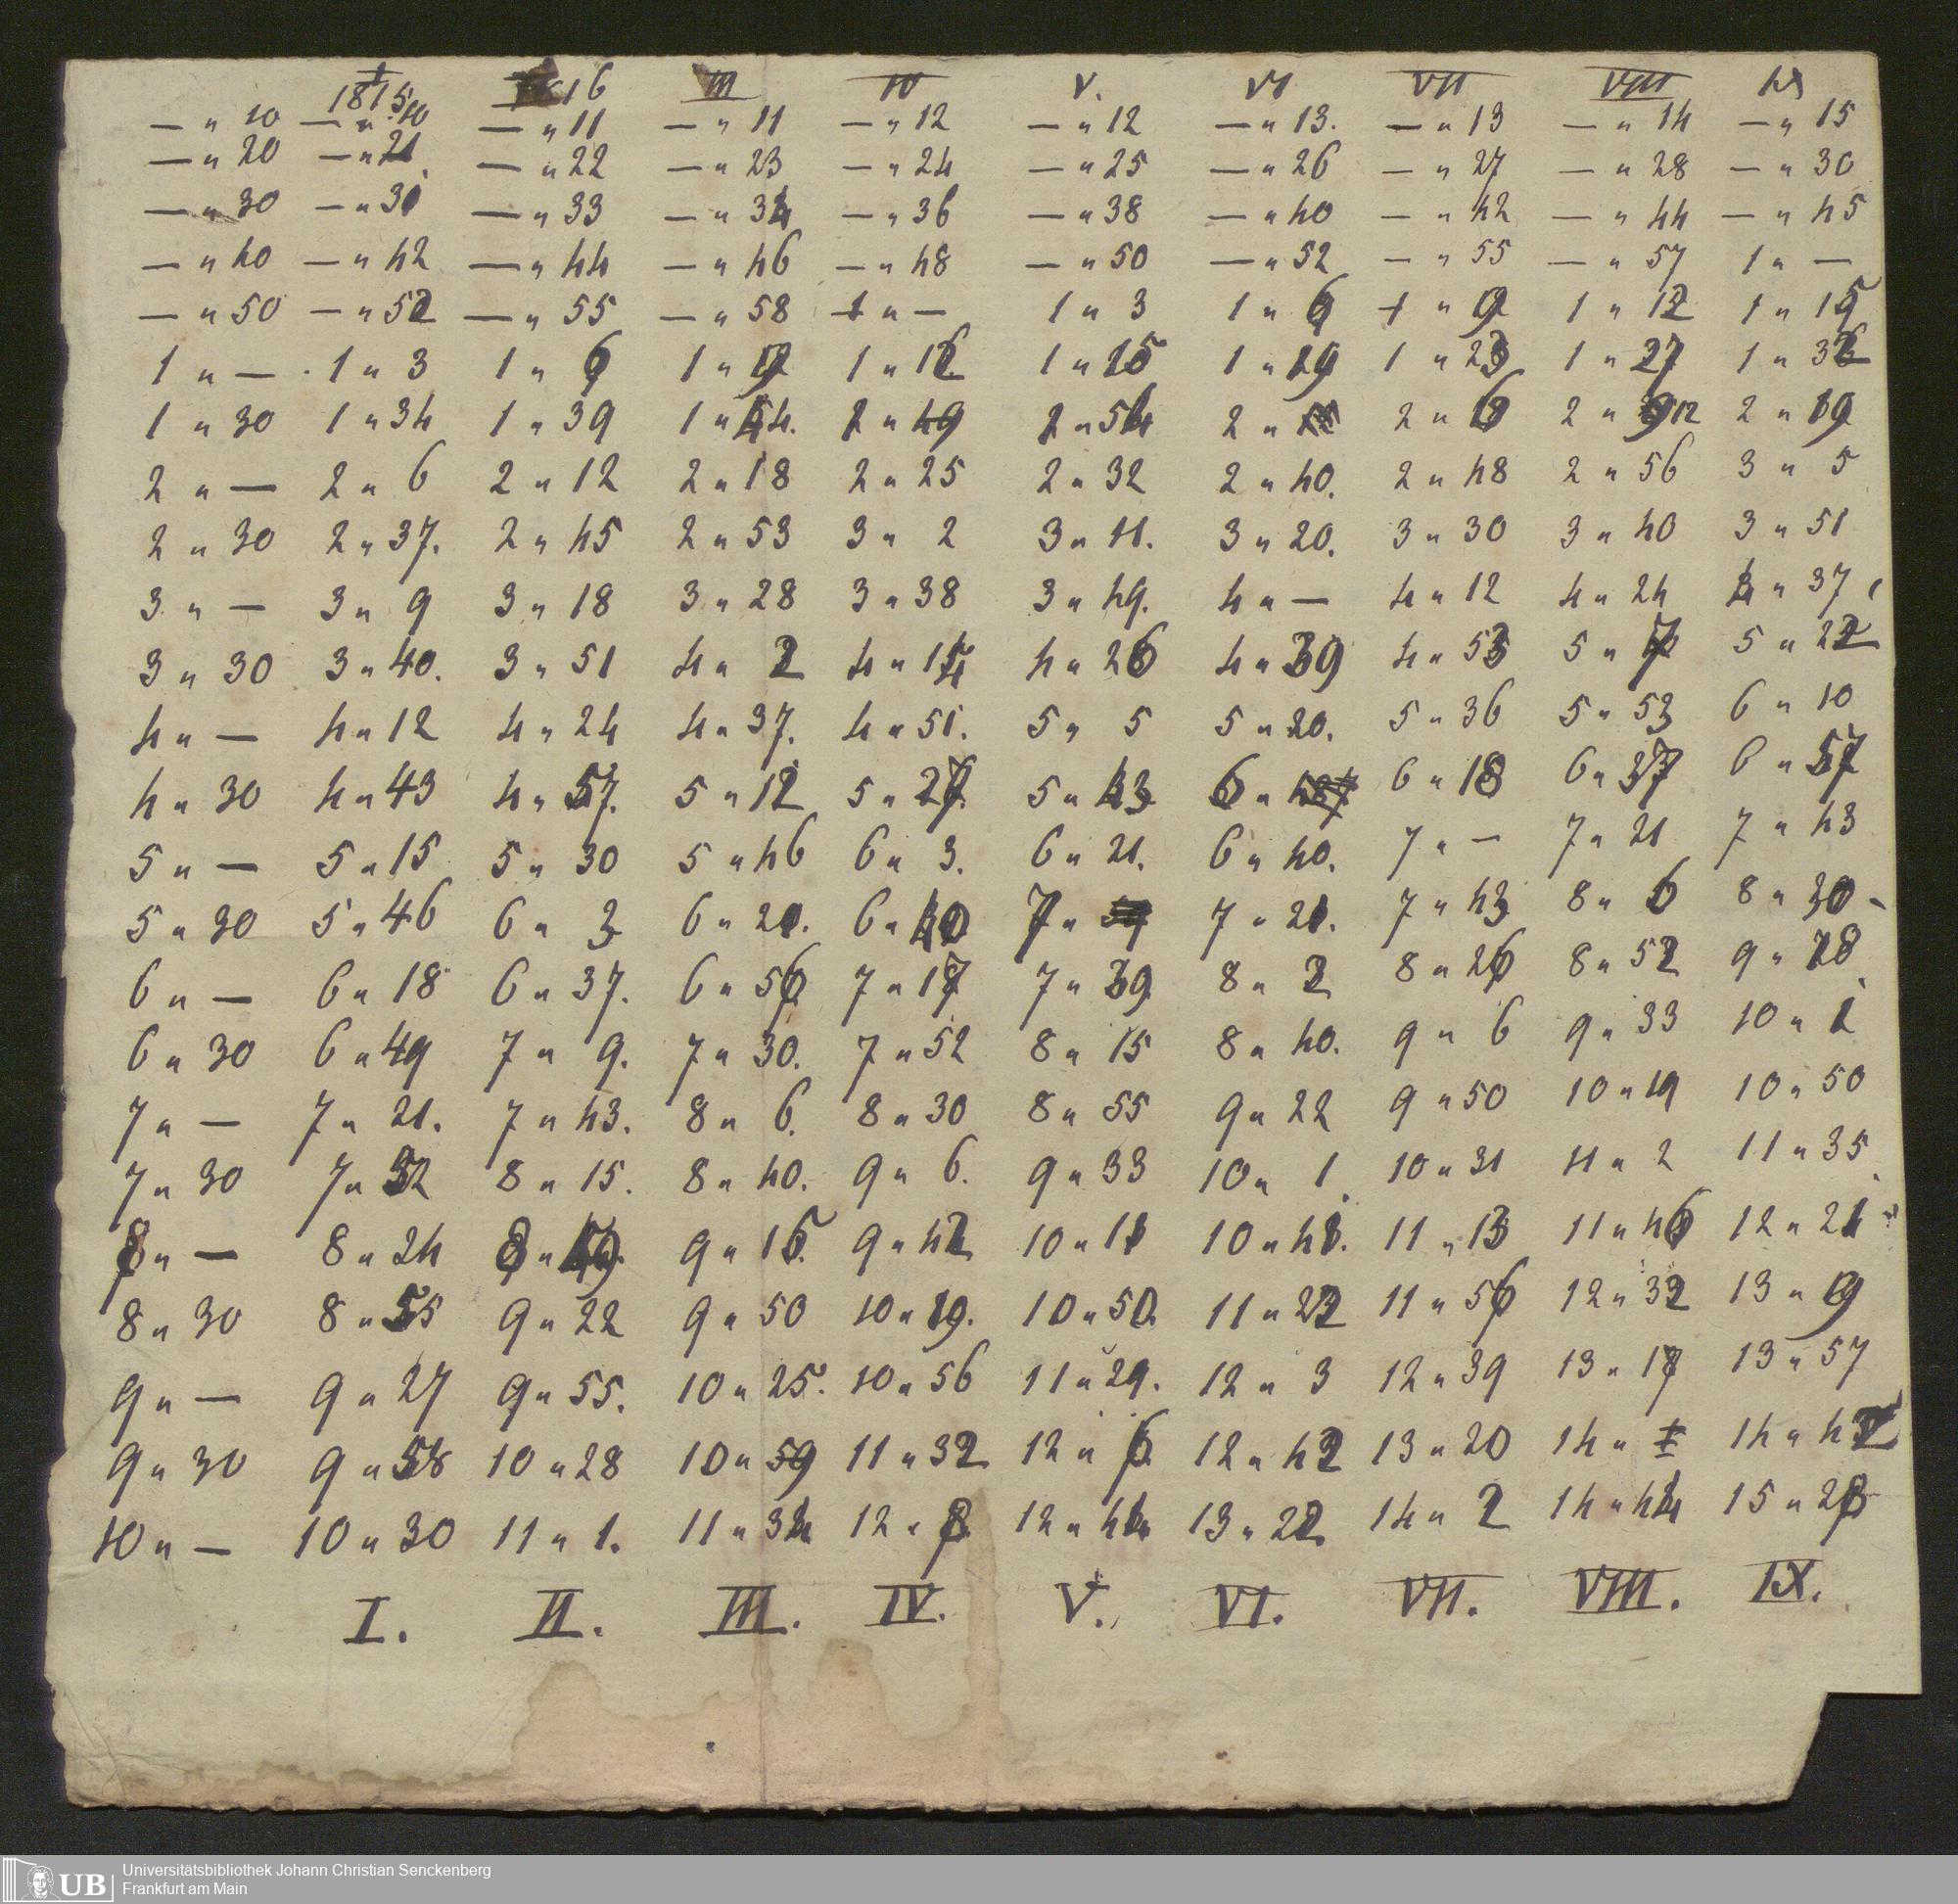 I 16 III IV V. VI VII VIII IX
1815
— " 10 — " 10 — " 11 — " 11 — " 12 — " 12 — " 13. — " 13 — " 14 — " 15
— " 20 — " 21 — " 22 — " 23 — " 24 — " 25 — " 26 — " 27 — " 28 — " 30
— " 30 — " 31 — " 33 — " 34 — " 36 — " 38 — " 40 — " 42 — " 44 — " 45
— " 40 — " 42 — " 44 — " 46 — " 48 — " 50 — " 52 — " 55 — " 57 1 " —
— " 50 — " 52 — " 55 — " 58 1 " — 1 " 3 1 " 1 " 1 " 12 1 " 15
1 " — 1 " 3 1 " 6 1 " 1 " 1 " 1 " 1 " 23 1 " 27 1 " 32
1 " 30 1 " 34 1 " 39 1 " 2 " 49 2 " 2 " 2 " 6 2 " 12 2 " 19
2 " — 2 " 6 2 " 12 2 " 18 2 " 25 2 " 32 2 " 40. 2 " 48 2 " 56 3 " 5
2 " 30 2 " 37. 2 " 45 2 " 53 3 " 2 3 " 11. 3 " 20. 3 " 30 3 " 40 3 " 51
3 " — 3 " 9 3 " 18 3 " 28 3 " 38 3 " 49. 4 " — 4 " 12 4 " 24 4 " 37
3 " 30 3 " 40. 3 " 51 4 " 2 4 " 14 4 " 26 4 " 39 4 " 53 5 " 7 5 " 22
4 " — 4 " 12 4 " 24 4 " 37. 4 " 51. 5 " 5 5 " 20. 5 " 36 5 " 53 6 " 10
4 " 30 4 " 43 4 " 57. 5 " 12 5 " 27. 5 " 43 6 " 6 " 18 6 " 37 6 " 57
5 " — 5 " 15 5 " 30 5 " 46 6 " 3. 6 " 21. 6 " 40. 7 " — 7 " 21 7 " 43
5 " 30 5 " 46 6 " 3 6 " 20. 6 " 40 7 " 7 " 21. 7 " 43 8 " 6 8 " 30
6 " — 6 " 18 6 " 37. 6 " 56 7 " 17 7 " 39 8 " 2 8 " 26 8 " 52 9 " 18
6 " 30 6 " 49 7 " 9. 7 " 30. 7 " 52 8 " 15 8 " 40. 9 " 6 9 " 33 10 " 1
7 " — 7 " 21. 7 " 43. 8 " 6. 8 " 30 8 " 55 9 " 22 9 " 50 10 " 19 10 " 50
7 " 30 7 " 52 8 " 15. 8 " 40. 9 " 6. 9 " 33 10 " 1. 10 " 31 11 " 2 11 " 35
8 " — 8 " 24 8 " 49 9 " 15. 9 " 42 10 " 11 10 " 41. 11 " 13 11 " 46 12 " 21
8 " 30 8 " 55 9 " 22 9 " 50 10 " 19. 10 " 50. 11 " 22 11 " 56 12 " 32 13 " 9
9 " — 9 " 27 9 " 55. 10 " 25. 10 " 56 11 " 29. 12 " 3 12 " 39 13 " 17 13 " 57
9 " 30 9 " 58 10 " 28 10 " 59 11 " 32 12 " 6 12 " 42 13 " 20 14 " 1 14 " 42
10 " — 10 " 30 11 " 1. 11 " 34 12 " 8. 12 " 44 13 " 22 14 " 2 14 " 44 15 " 28
I. II. III. IV. V. VI. VII. VIII. IX.
UB Universitätsbibliothek Johann Christian Senckenberg
Frankfurt am Main